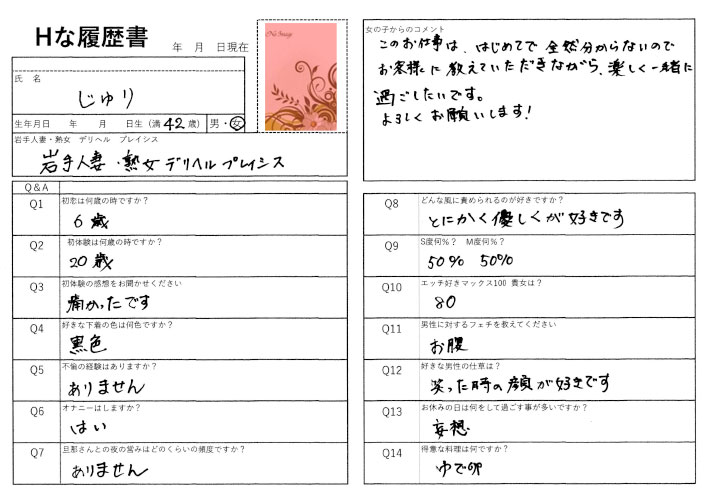 Hな履歴書
年 月 日現在
No Image
氏 名
じゅり
生年月日 年 月 日生(満 42 歳) 男・女
岩手人妻・熟女 デリヘル プレイシス
岩手人妻・熟女デリヘルプレイシス
女の子からのコメント
このお仕事は、はじめてで全然分からないので
お客様に教えていただきながら、楽しく一緒に
過ごしたいです。
よろしくお願いします!
Q&A
Q1 初恋は何歳の時ですか?
6歳
Q2 初体験は何歳の時ですか?
20歳
Q3 初体験の感想をお聞かせください
痛かったです
Q4 好きな下着の色は何色ですか?
黒色
Q5 不倫の経験はありますか?
ありません
Q6 オナニーはしますか?
はい
Q7 旦那さんとの夜の営みはどのくらいの頻度ですか?
ありません
Q8 どんな風に責められるのが好きですか?
とにかく優しくが好きです
Q9 S度何%? M度何%?
50% 50%
Q10 エッチ好きマックス100 貴女は?
80
Q11 男性に対するフェチを教えてください
お腹
Q12 好きな男性の仕草は?
笑った時の顔が好きです
Q13 お休みの日は何をして過ごす事が多いですか?
妄想
Q14 得意な料理は何ですか?
ゆで卵